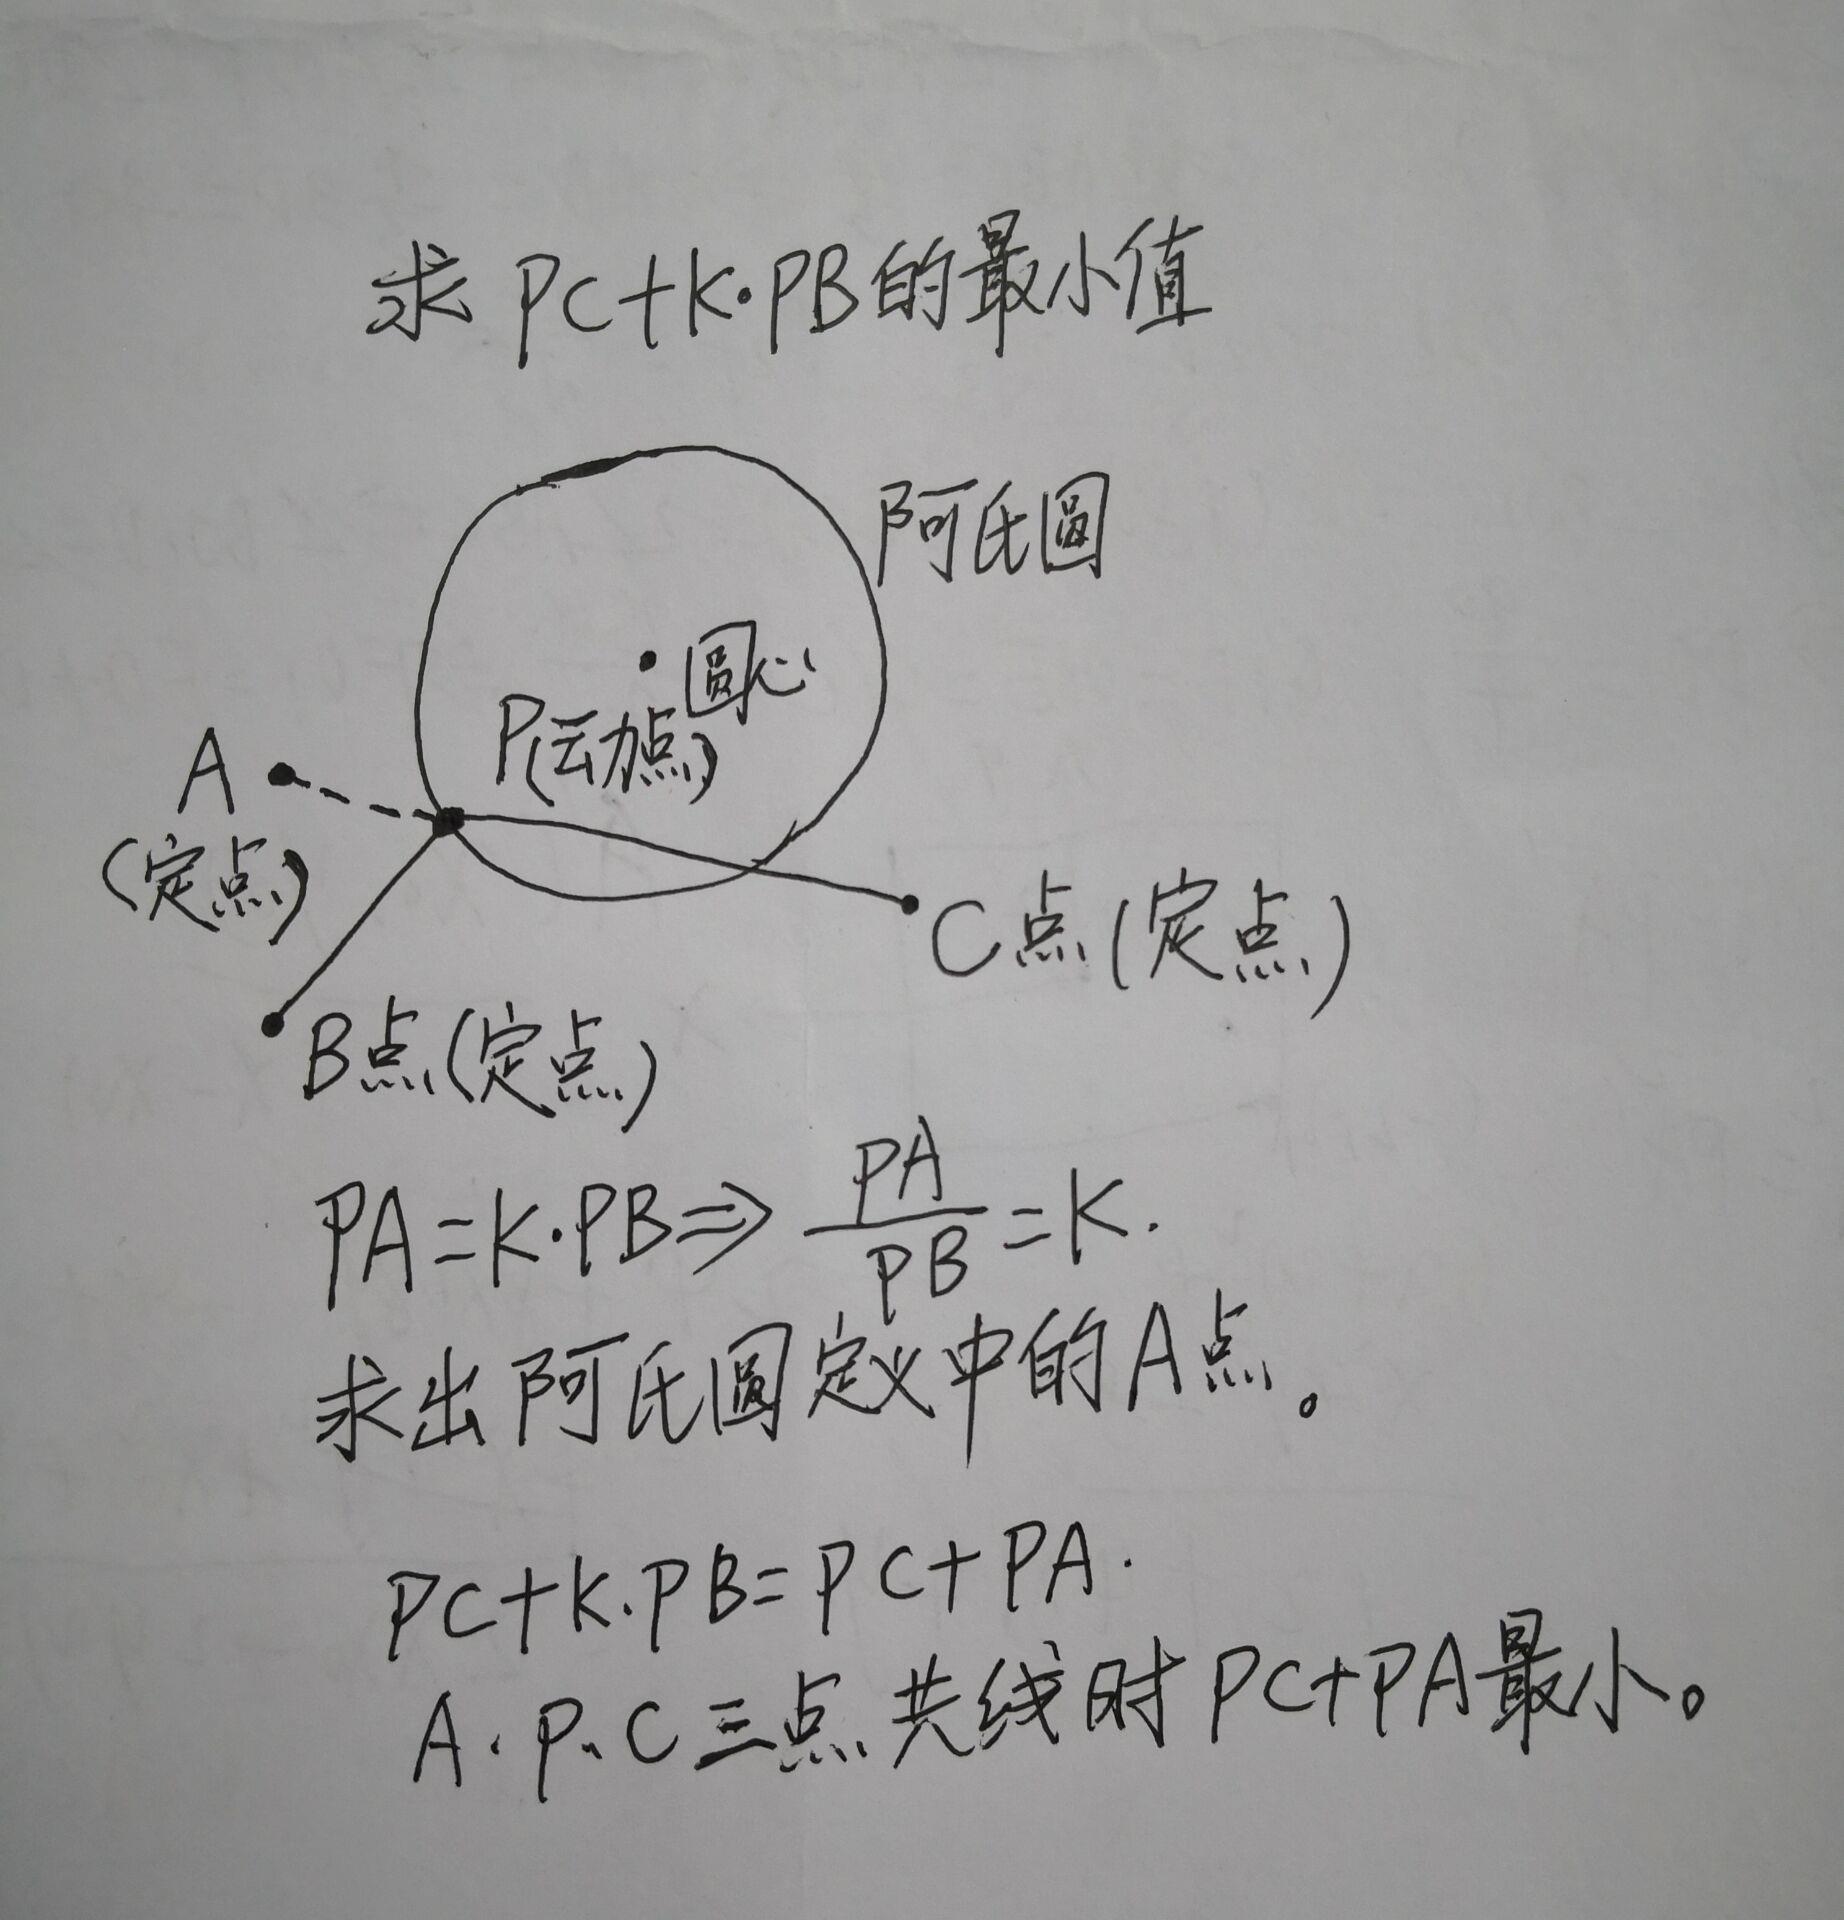 求 PC+K·PB的最小值
阿氏圆
圆心
P(动点)
A
(定点)
C点(定点)
B点(定点)
PA=K·PB⇒PA/PB=K.
求出阿氏圆定义中的A点。
PC+K.PB=PC+PA.
A.P、C三点共线时PC+PA最小。